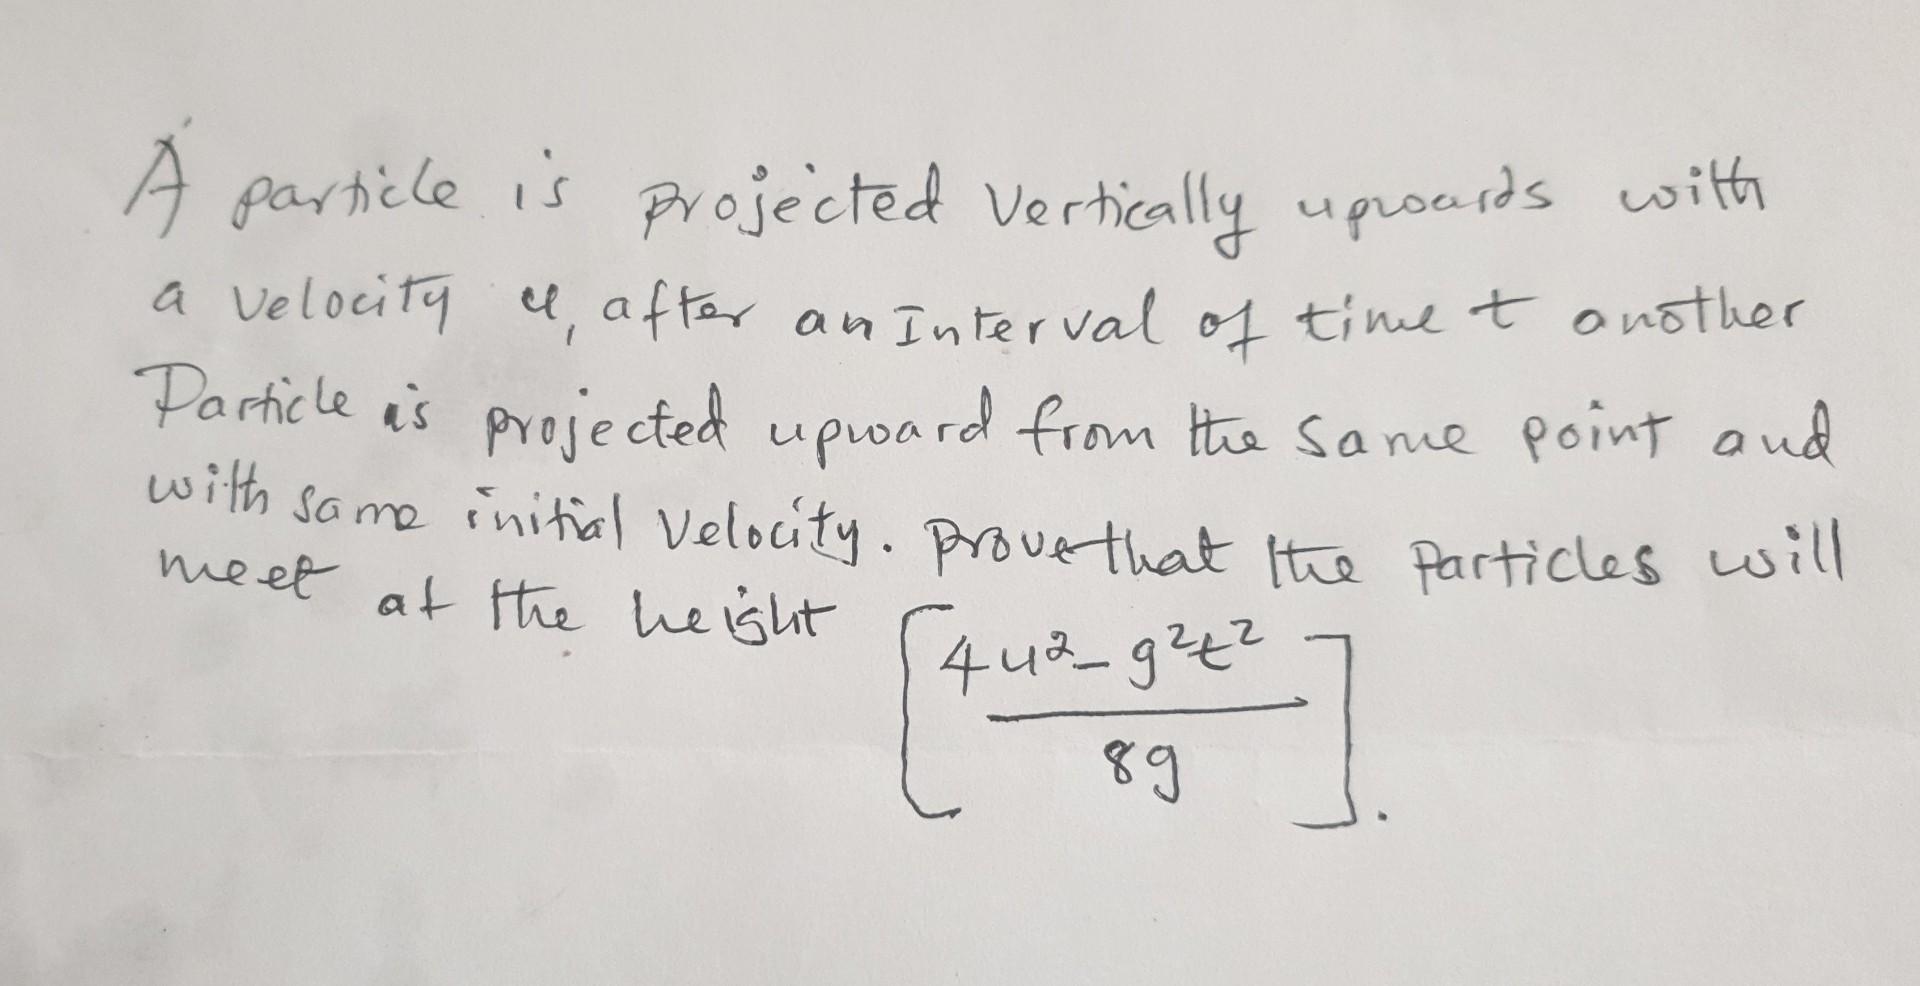 A particle is projected vertically upwards with
a velocity u, after an Interval of time t another
Particle is projected upward from the same point and
with same initial velocity. prove that the Particles will
meet at the height [4u² - g²t² / 8g].